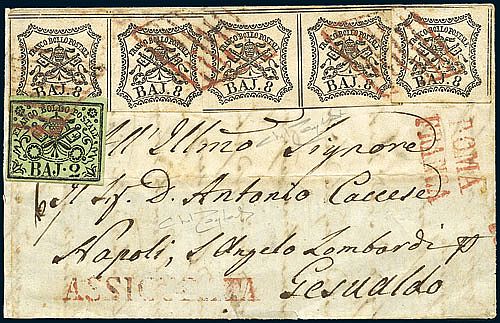 FRANCO BOLLO POSTALE FRANCO BOLLO POSTALE FRANCO BOLLO POSTALE FRANCO BOLLO POSTALE FRANCO BOLLO POSTALE
BAJ. 8 BAJ. 8 BAJ. 8 BAJ. 8 BAJ. 8
FRANCO BOLLO POSTALE
BAJ. 2
All'Illmo Signore
Il Sig. D. Antonio Caccese
Napoli, S. Angelo Lombardi p
Gesualdo
ASSICURATA
ROMA